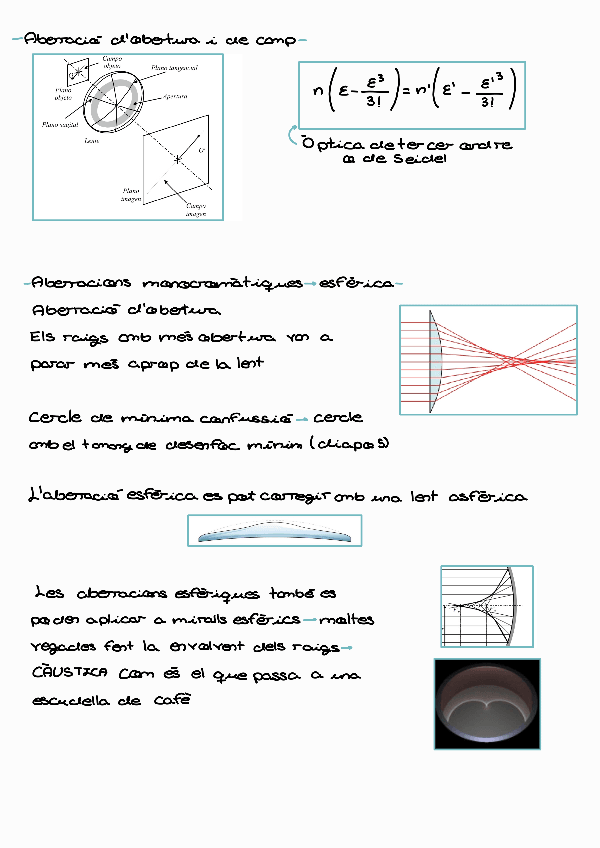 -Aberració d'abertura i de camp-
Campo
objeto
Plano
objeto
Plano tangencial
Apertura
Plano sagital
Lente
Plano
imagen
Campo
imagen
n(ε-ε³/3!)=n'(ε'-ε'³/3!)
Òptica de tercer ordre
o de Seidel
-Aberracions monocromàtiques→esfèrica-
Aberració d'abertura
Els raigs amb més abertura van a
parar més aprop de la lent
Cercle de mínima confussió→cercle
amb el tamany de desenfoc mínim (diapo 5)
L'aberració esfèrica es pot corregir amb una lent asfèrica
Les aberracions esfèriques també es
poden aplicar a miralls esfèrics→moltes
vegades fent la envolvent dels raigs→
CÀUSTICA Com és el que passa a una
escudella de cafè